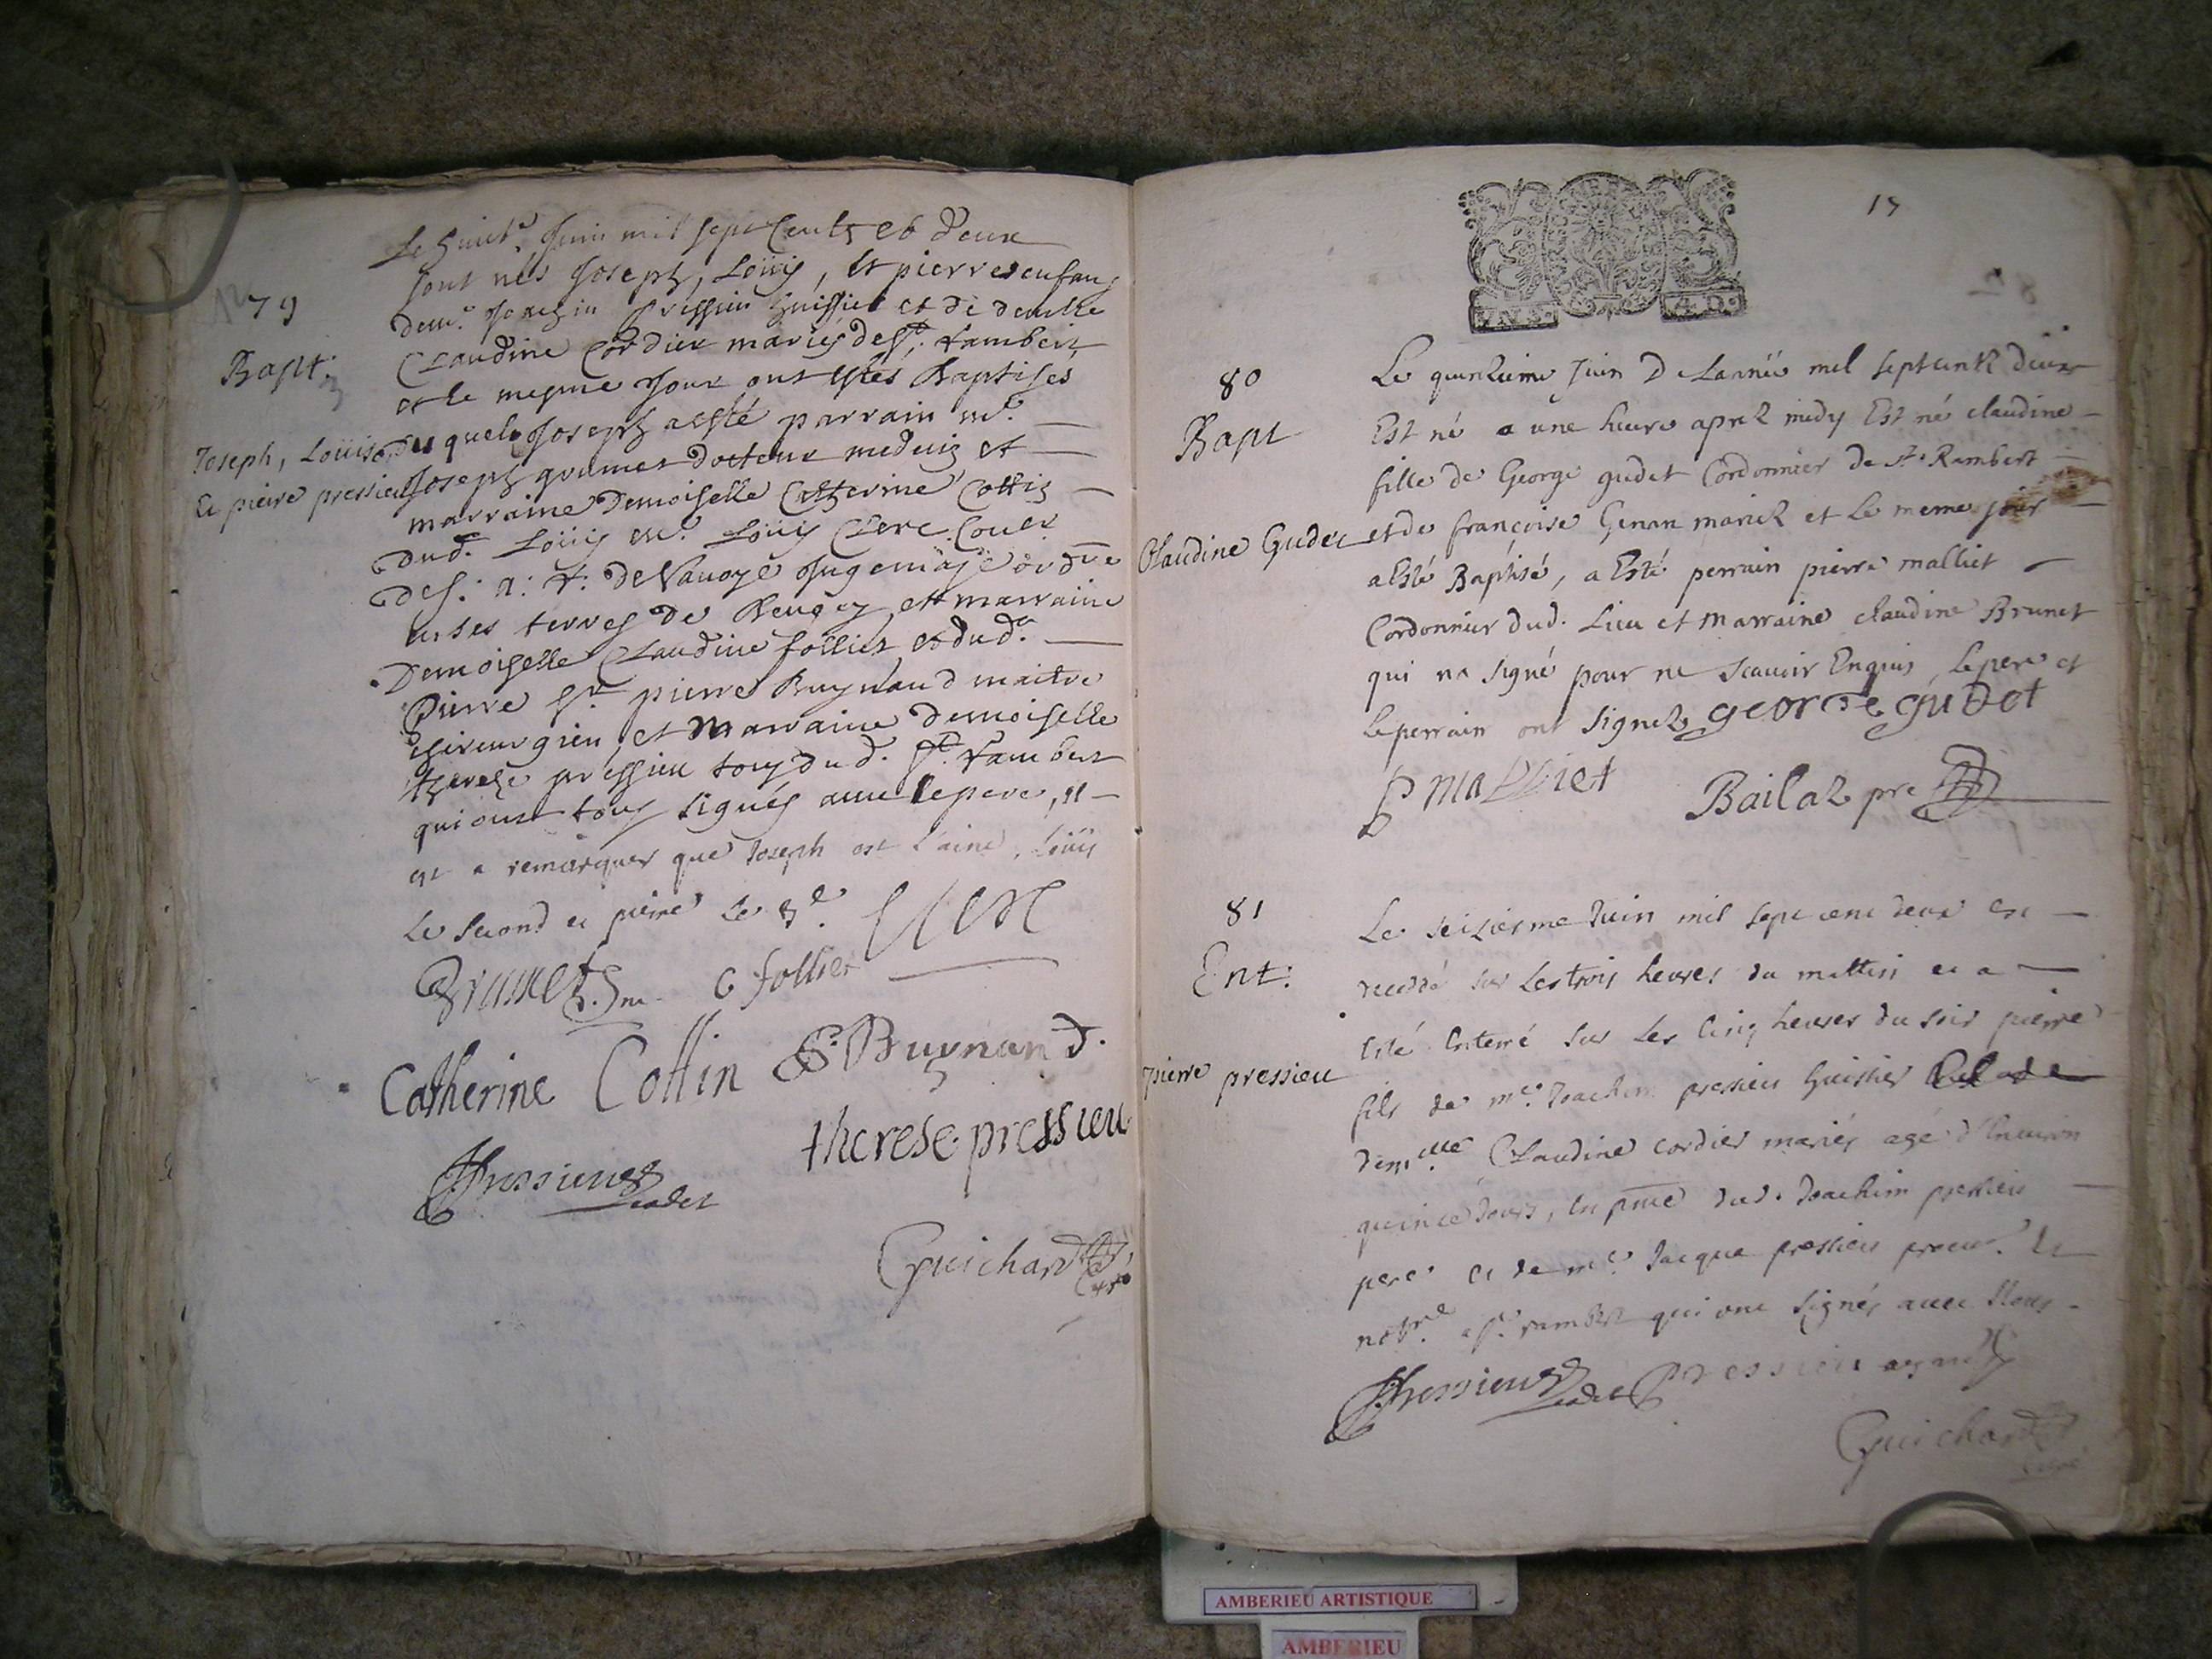 79
Bapt.
Joseph, Loüis
Et pierre pressieu
Le huict.e Juin mil sept Cents et deux
sont nés Joseph, Loüis, et pierre enfans
de m.e Joachin pressieu huissier et de demlle
Claudine Cordier mariés de St. Rambert
et le mesme Jour ont estés Baptises
du quel Joseph a esté parrain m.e
Joseph grumet docteur medecin et
marraine Demoiselle Catherine Cottin
dud. Loüis m.e Loüis Clerc
de S. A. R. de Savoye Juge maje
es ses terres de Beugey et marraine
Demoiselle Claudine follier et dud.
Pierre Sr. pierre Buynand maitre
chirurgien et Marraine demoiselle
therese pressieu tous du d. St. Rambert
qui ont tous signés avec le pere, Il
est a remarquer que Joseph est l'ainé, Loüis
Le second et pierre Le 3.e Clerc
Grumet D. m. C follier
Catherine Cottin P. Buynand.
therese pressieu
JPressieu cadet
Guichard Curé
15
80
Bapt
Claudine Gudet
Le quinzieme Juin De Lannéë mil sept cents deux
Est né a une heure aprez midy Est né claudine
fille de George gudet Cordonnier de St. Rambert
et de françoise Genan mariez et le meme jour
a Esté Baptisé, a Esté perrain pierre malliet
Cordonnier dud. Lieu et Marraine claudine Brunet
qui na signé pour ne scavoir Enquis, le pere et
le perrain ont signez george gudet
P malliet Bailaz pre
81
Ent:
pierre pressieu
Le seiziesme Juin mil sept cent deux est
decedé sur Les trois heures du mattin et a
Esté Enterré sur Les Cinq heures du soir pierre
fils de m.e Joachim pressieu huissier et de
demelle Claudine cordier mariés agé d'Environ
quinze Jours, En pnce dud. Joachim pressieu
pere et de m.e Jacque pressieu procur. Et
not.re a St. rambert qui ont signés avec Nous
JPressieu cadet Pressieu
Guichard
curé
AMBERIEU ARTISTIQUE
AMBERIEU